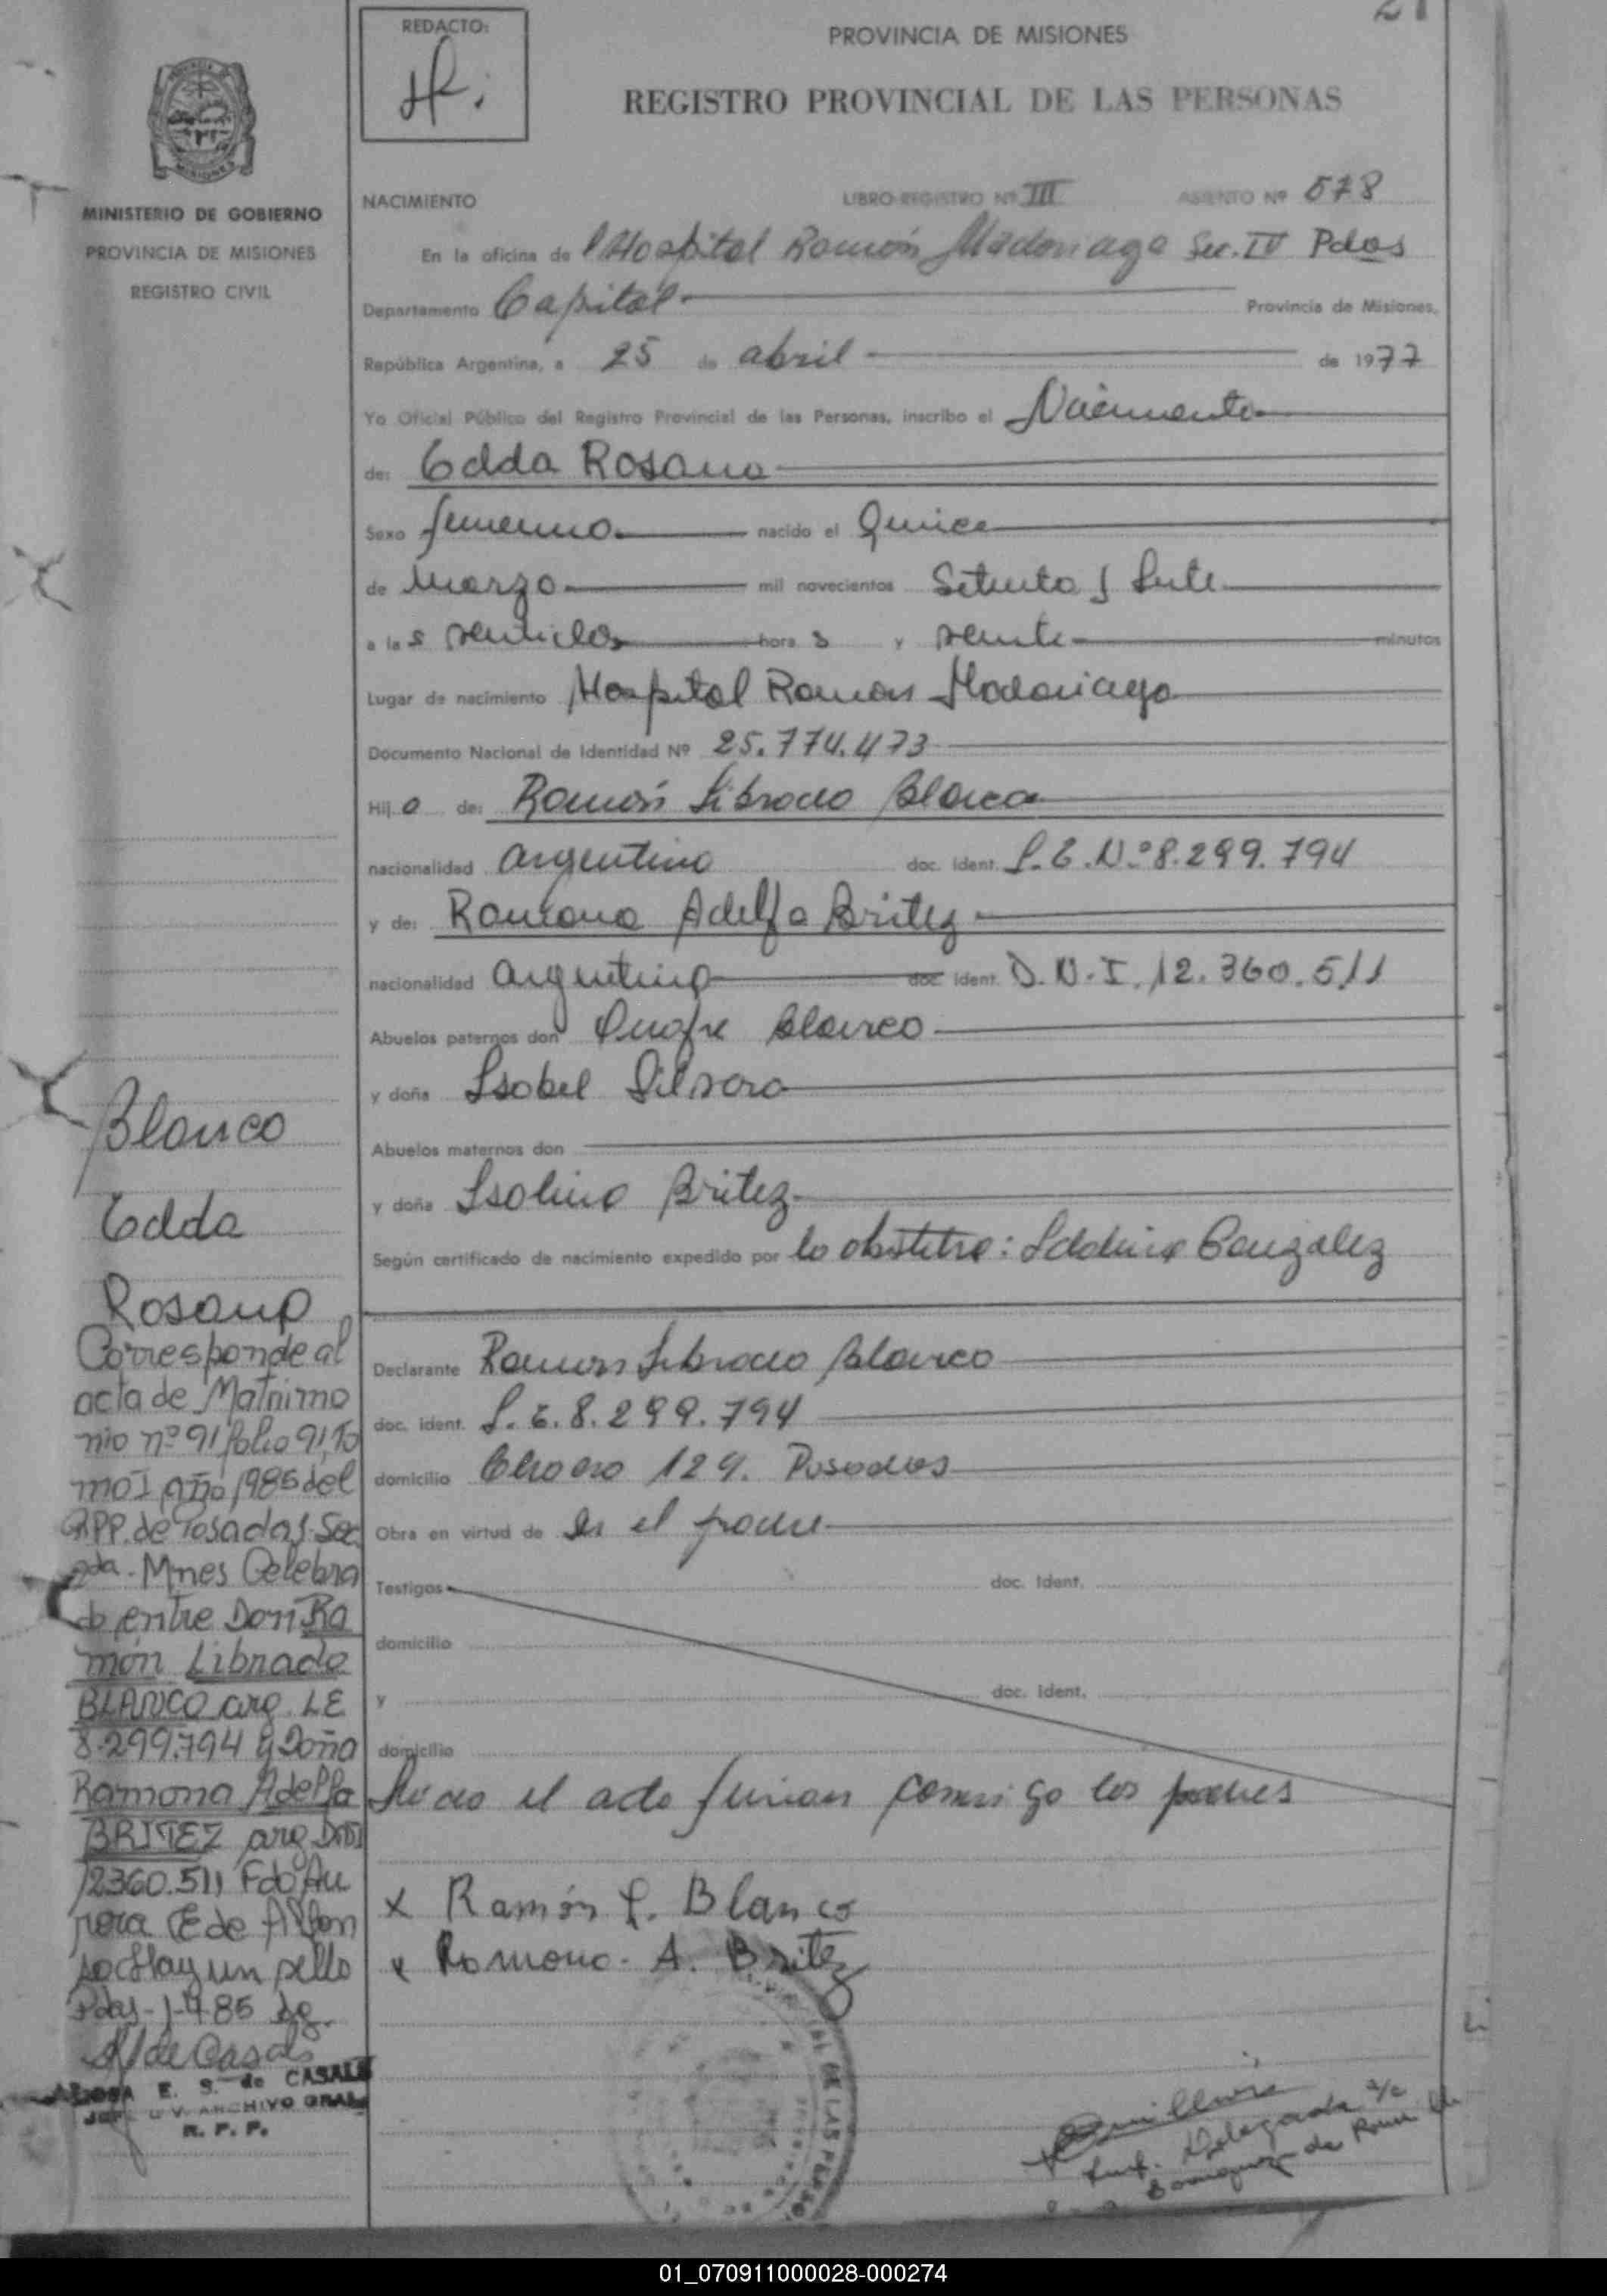 REDACTO:
PROVINCIA DE MISIONES
REGISTRO PROVINCIAL DE LAS PERSONAS
MINISTERIO DE GOBIERNO
PROVINCIA DE MISIONES
REGISTRO CIVIL
NACIMIENTO LIBRO-REGISTRO Nº III ASIENTO Nº 578
En la oficina de Hospital Ramón Madariaga Sec. IV Pdas
Departamento Capital Provincia de Misiones,
República Argentina, a 25 de abril de 1977
Yo Oficial Público del Registro Provincial de las Personas, inscribo el Nacimiento
de: Edda Rosana
Sexo femenino nacido el Quince
de Marzo mil novecientos Setenta y Siete
a las veintidos horas y veinte minutos
Lugar de nacimiento Hospital Ramon Madariaga
Documento Nacional de Identidad Nº 25.774.473
Hija de: Ramón Librado Blanco
nacionalidad argentino doc. ident. L.E.Nº 8.299.794
y de: Ramona Adelfa Britez
nacionalidad argentina doc. ident. D.N.I. 12.360.511
Abuelos paternos don Onofre Blanco
y doña Isabel Silvero
Abuelos maternos don
y doña Isolina Britez
Según certificado de nacimiento expedido por la obstetra: Gonzalez
Declarante Ramon Librado Blanco
doc. ident. L.E. 8.299.794
domicilio 129. Posadas
Obra en virtud de Ser el padre
Testigos doc. ident.
domicilio
y doc. ident.
domicilio
el acta firman conmigo los padres
x Ramón L. Blanco
x Ramona. A. Britez
Blanco
Edda
Rosana
Corresponde al
acta de Matrimo
nio nº 91 folio 91, To
mo I año 1985 del
RPP. de Posadas Sec
2da. Mnes Celebra
do entre Don Ra
món Librado
BLANCO arg. LE
8.299.794 y Doña
Ramona Adelfa
BRITEZ arg DNI
12360.511 Fdo Au
rora E de Alfon
so Hay un sello
Pdas-1-4-85
de Casals
E. S. de CASALS
ARCHIVO GRAL
R. P. P.
DE LAS PERSO
Delegada a/c
01_070911000028-000274